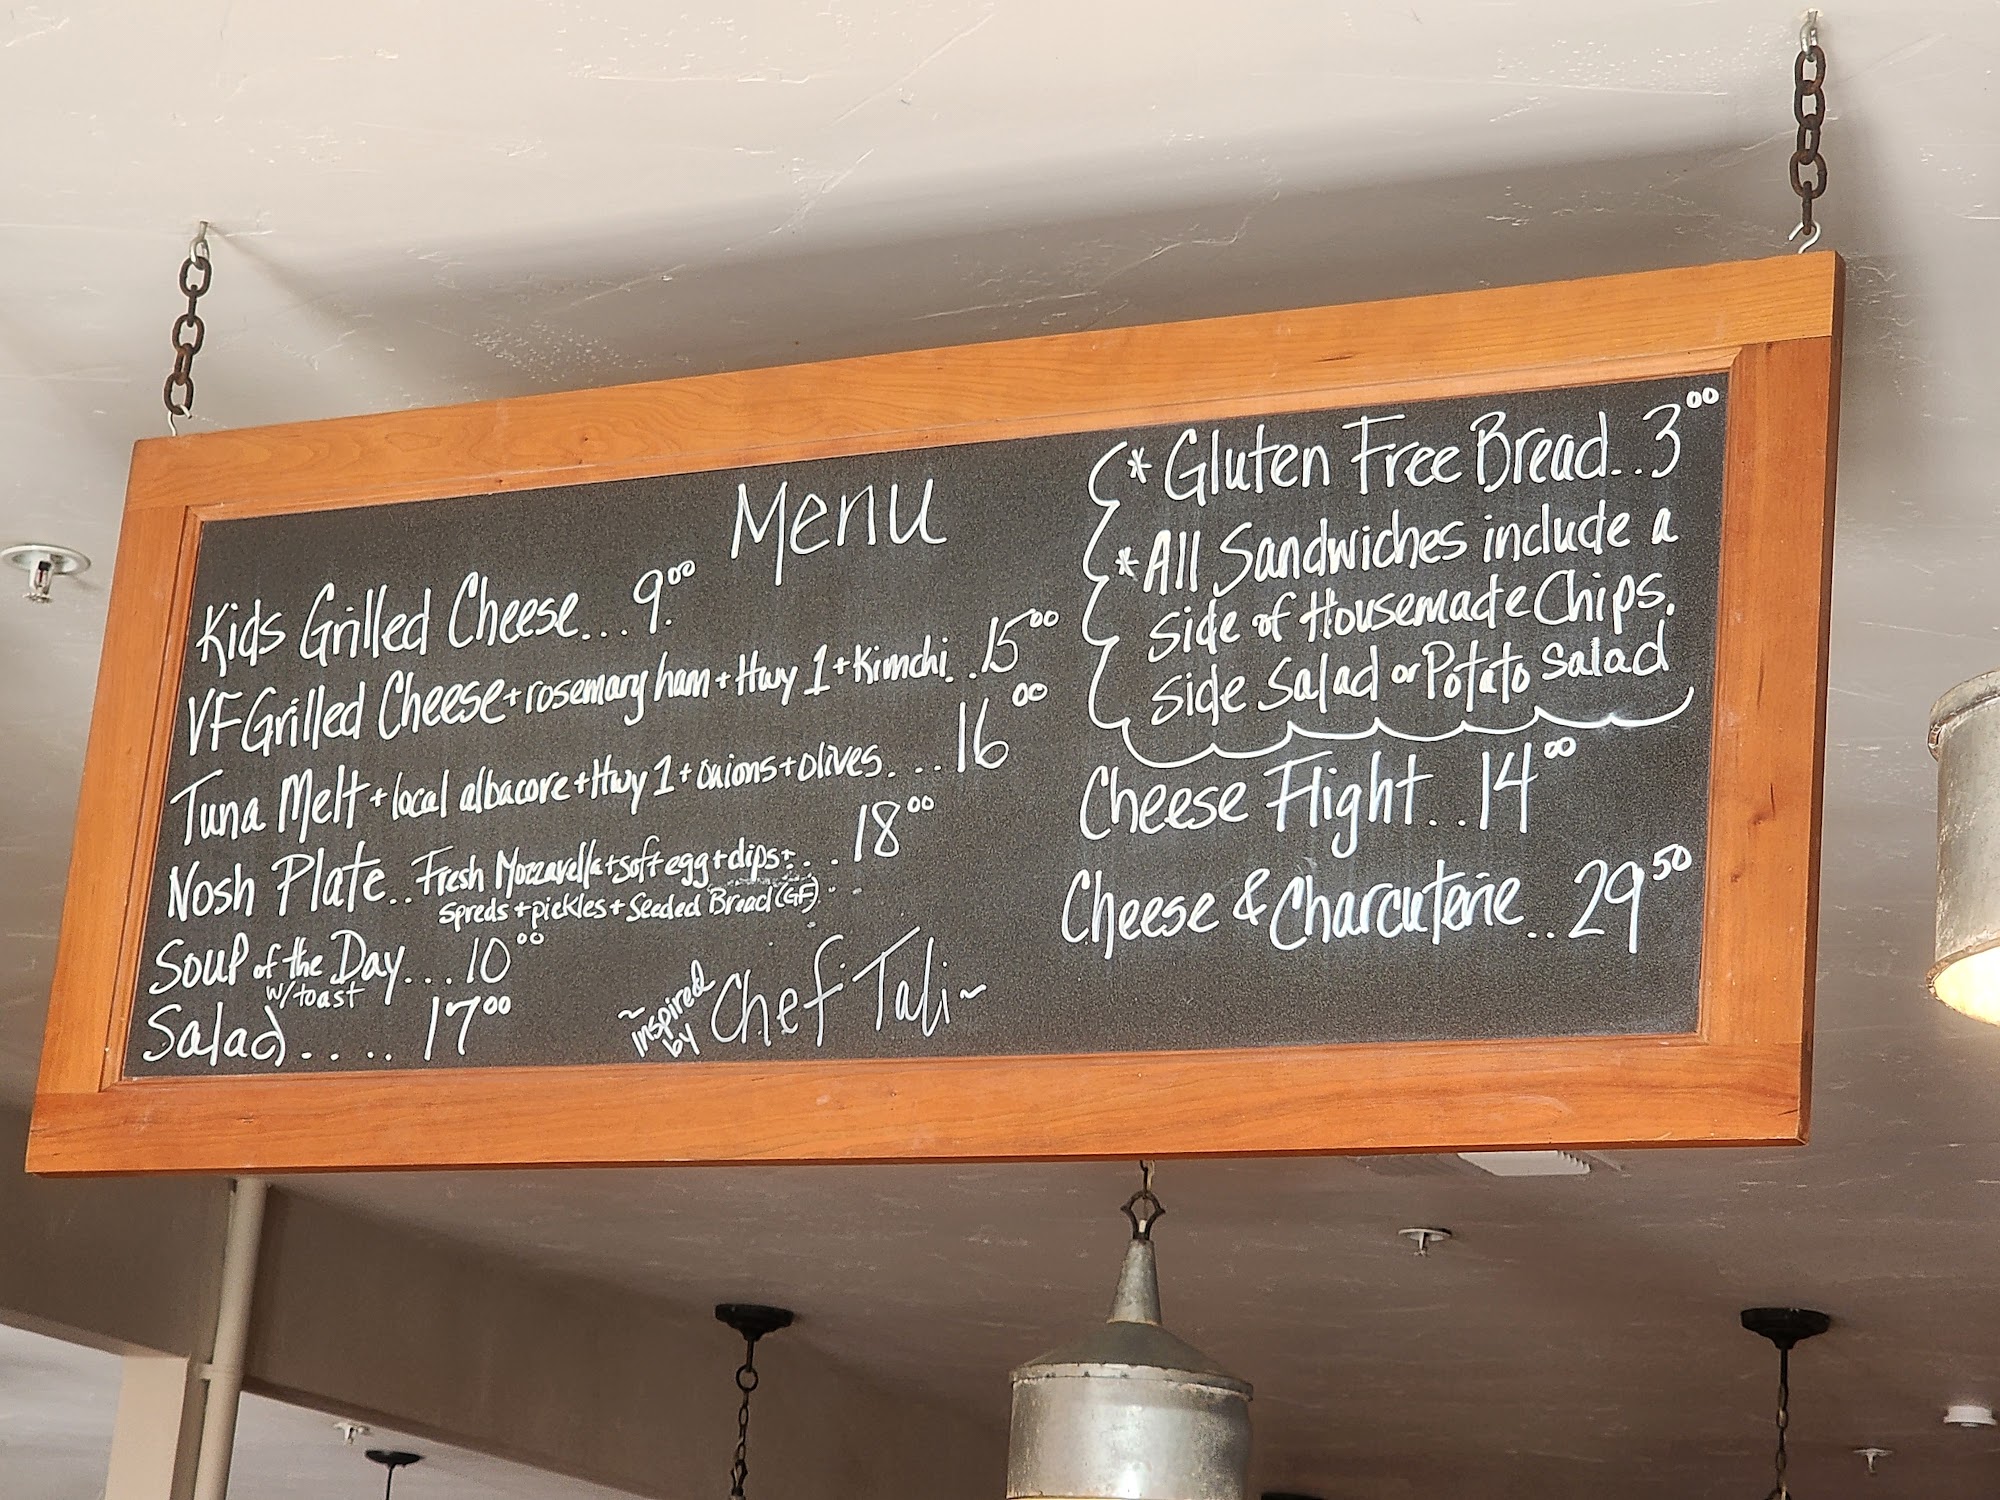 Menu
Kids Grilled Cheese... 9.00
VF Grilled Cheese + rosemary ham + Hwy 1 + Kimchi.. 15.00
Tuna Melt + local albacore + Hwy 1 + onions + olives... 16.00
Nosh Plate.. Fresh Mozzarella + soft egg + dips +... 18.00
spreds + pickles + Seeded Bread (GF)
Soup of the Day... 10.00
w/toast
Salad..... 17.00
~ inspired by Chef Tali ~
* Gluten Free Bread.. 3.00
* All Sandwiches include a
side of Housemade Chips,
side salad or Potato salad
Cheese Flight.. 14.00
Cheese & Charcuterie.. 29.50